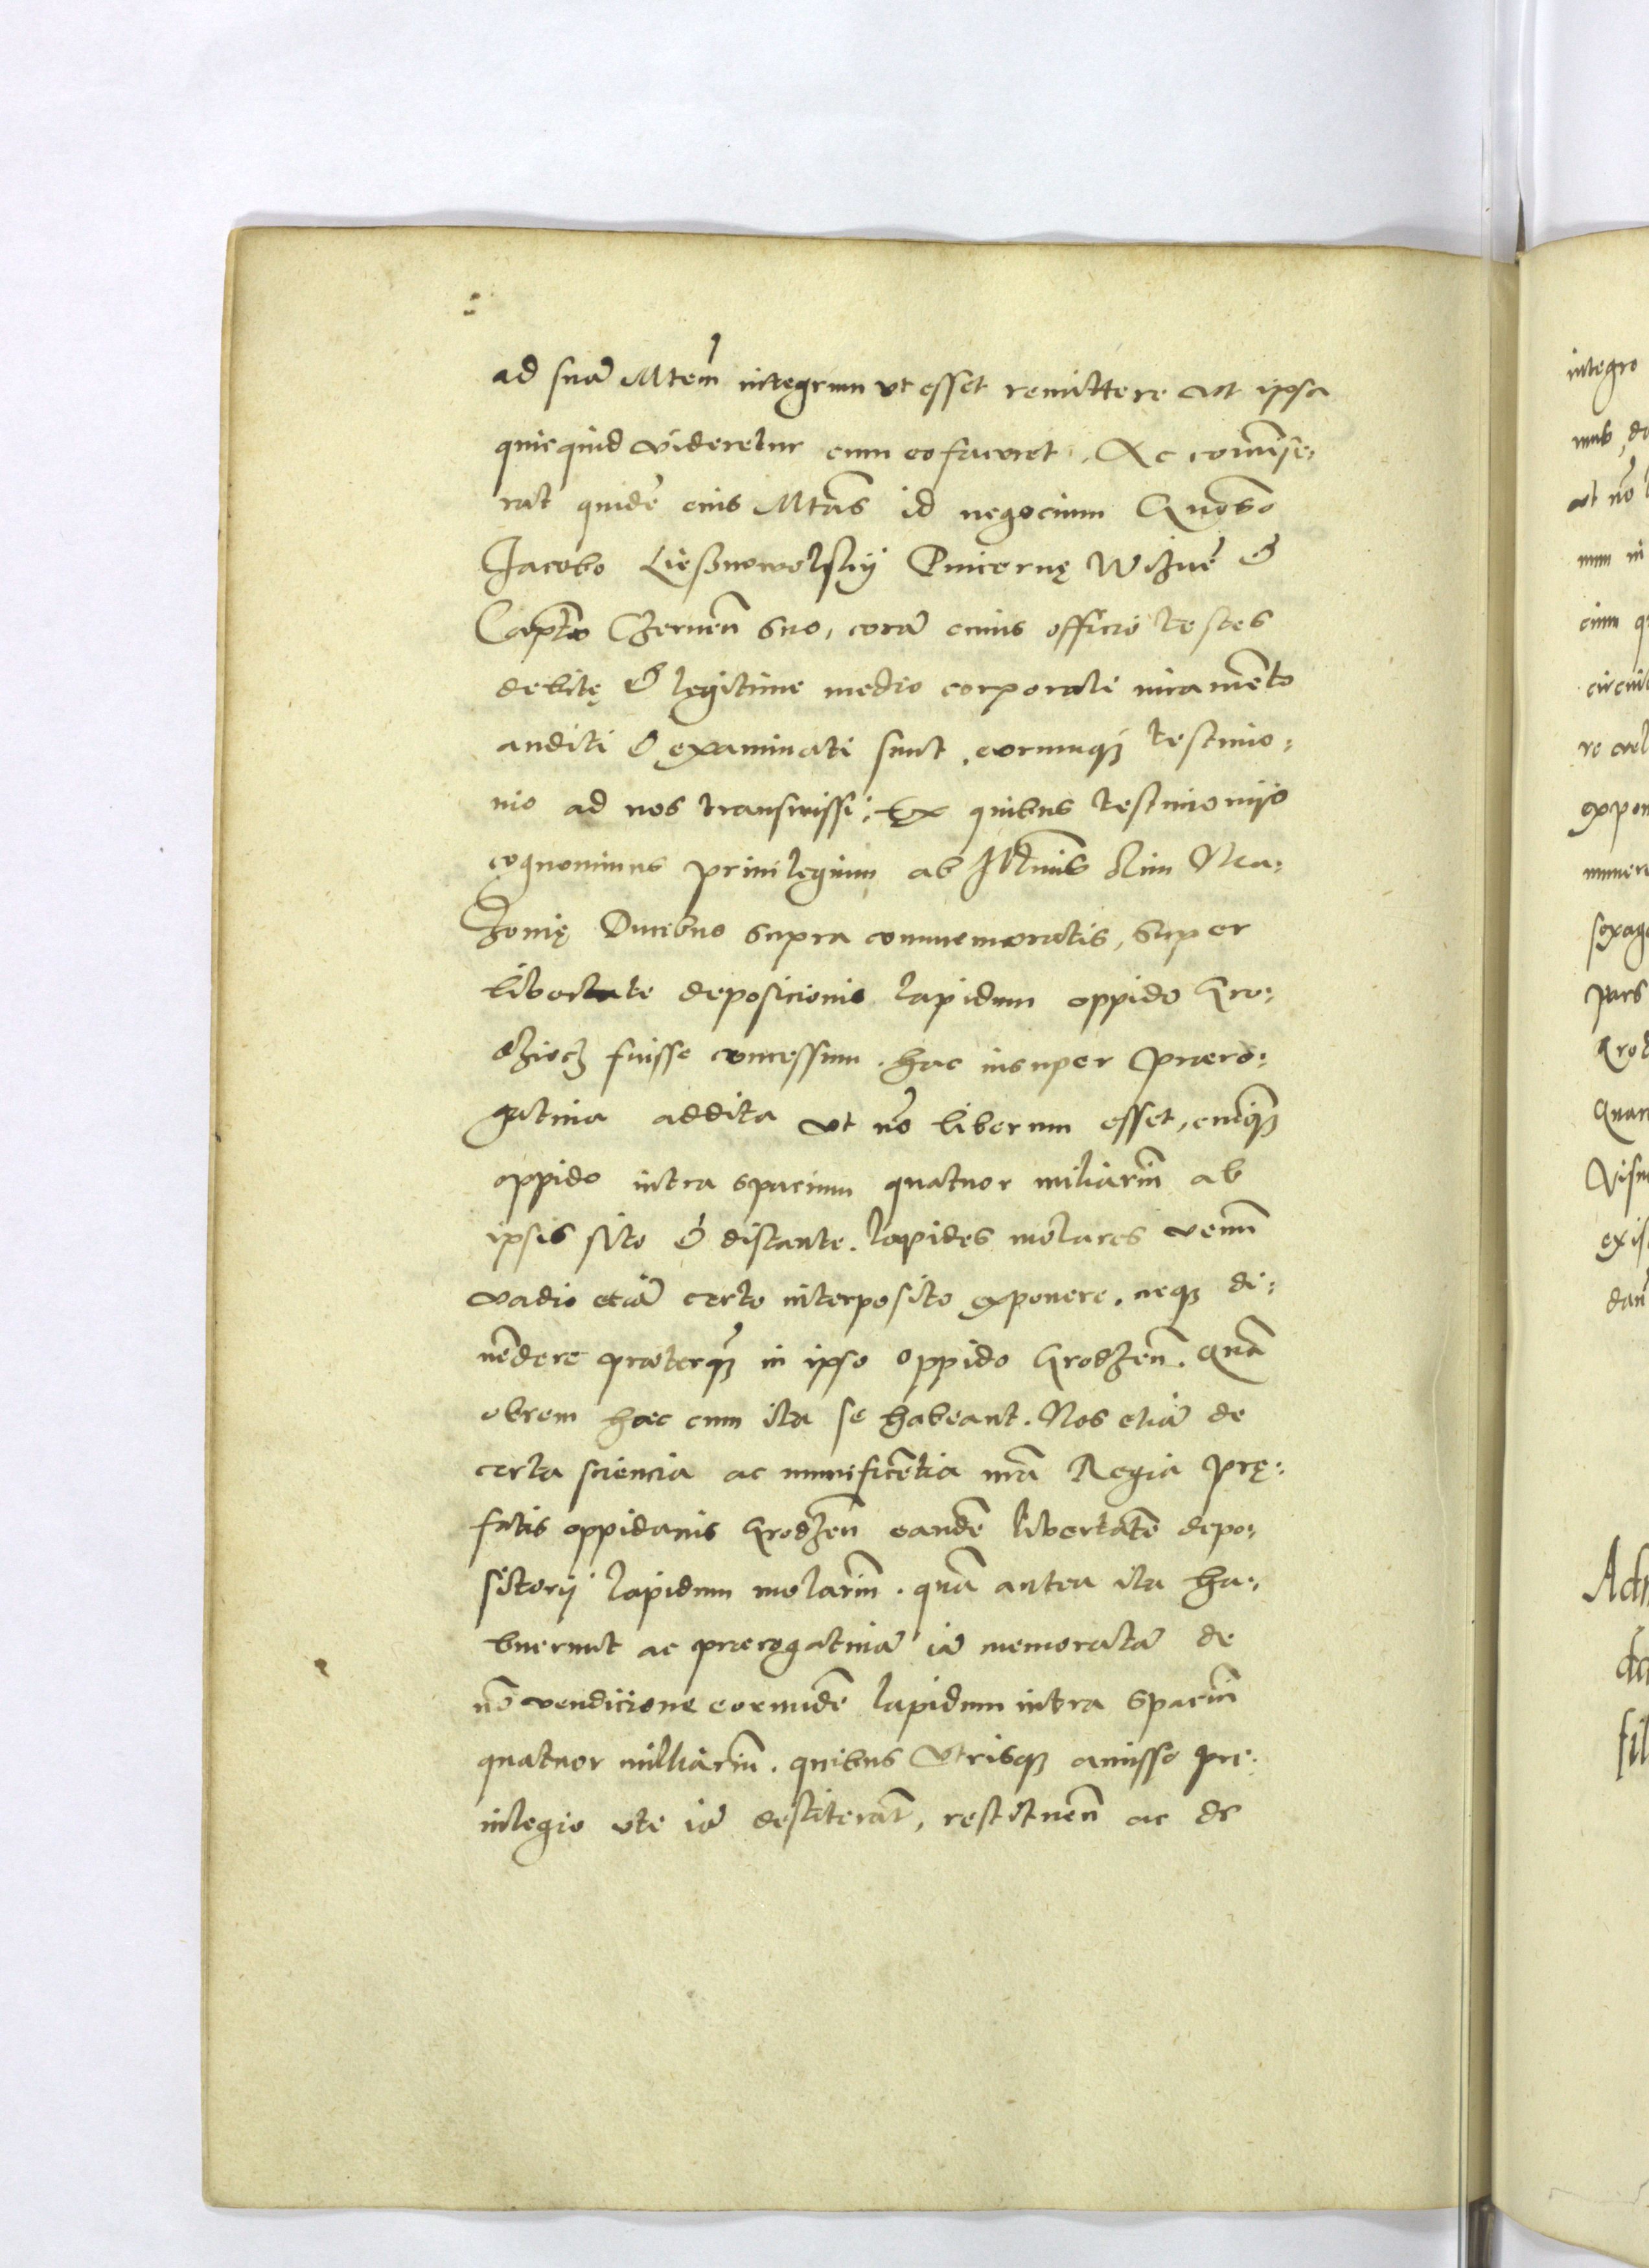 ad suā Mtem integrum ut esset remittere aut ipsa
quicquid videretur cum eo faceret. Ac cōmise:
rat quidē eius Mtas id negocium Gnoso
Jacobo Lieʒnowolskij Pincernę Wiznē &
Captō Czernen̄ suo, corā cuius officio testes
debitę & legitime medio corporali iuramēto
auditi & examinati sunt, eorumq3 testimo:
nio ad nos transmissi. Ex quibus testimonijs
cognovimus privilegium ab Illdmis olim Ma:
Zovię Ducibus supra commemoratis, super
libertate deposicionis lapidum oppido Gro:
dziecz fuisse concessum. hac insuper præro:
gativa addita ut nō liberum esset, cuiq3
oppido intra spacium quatuor miliariū ab
ipsis sito & distante. lapides molares venū
vadio etiā certo interposito exponere. neq3 di:
vēdere præterq3 in ipso oppido Grodzen̄. Quā
obrem hæc cum ita se habeant. Nos etiā de
certa sciencia ac munificētia nrā Regia prę:
fatis oppidanis Grodzen̄ eandē libertatē depo:
sitorij lapidum molariū. quā antea ita ha:
buerunt ac prærogativā iā memoratā de
nō vendicione eorundē lapidum intra spaciū
quatuor milliariū. quibus utrisq3 amisso pre:
vilegio ute iā destiterāt, restituen̄ ac de
integro
ut nō
re vel
pars
Quan